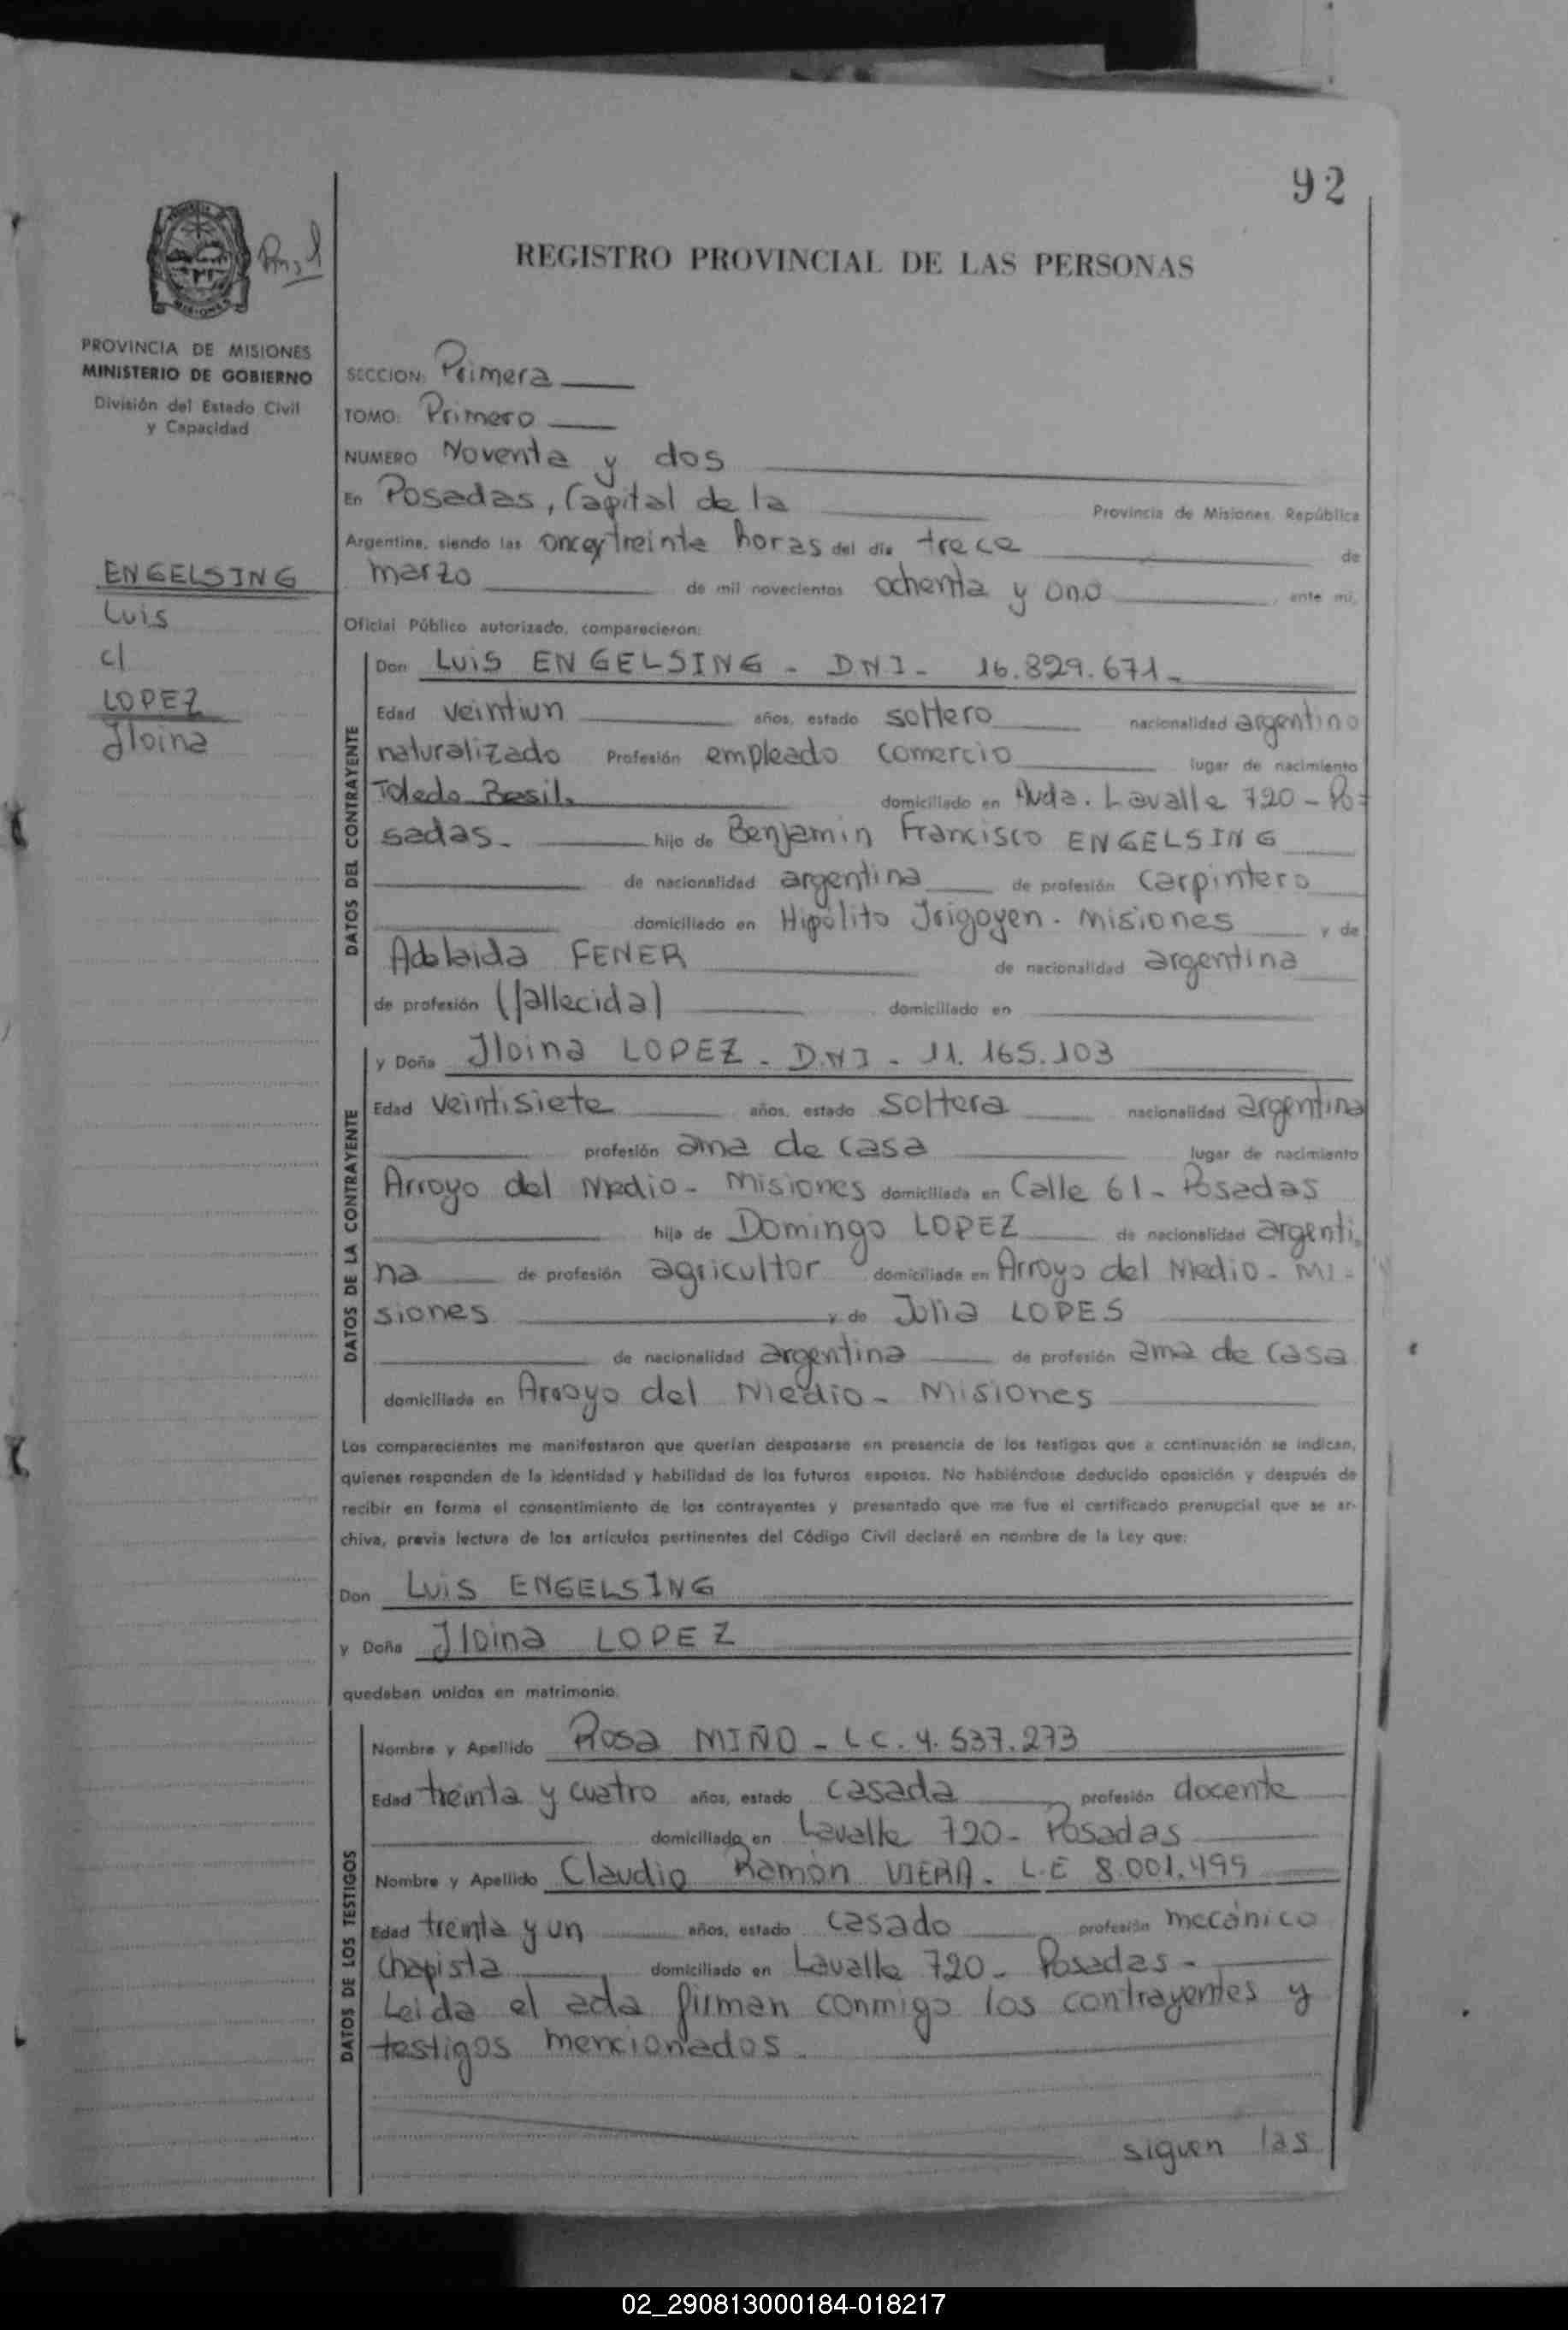 92
REGISTRO PROVINCIAL DE LAS PERSONAS
PROVINCIA DE MISIONES
MINISTERIO DE GOBIERNO
División del Estado Civil
y Capacidad
ENGELSING
Luis
c/
LOPEZ
Iloina
SECCION: Primera
TOMO: Primero
NUMERO Noventa y dos
En Posadas, Capital de la Provincia de Misiones, República
Argentina, siendo las once y treinta horas del día trece de
marzo de mil novecientos ochenta y uno, ante mí,
Oficial Público autorizado, comparecieron:
DATOS DEL CONTRAYENTE
Don LUIS ENGELSING - DNI - 16.829.671-
Edad veintiun años, estado soltero nacionalidad argentino
naturalizado Profesión empleado comercio lugar de nacimiento
Toledo Brasil. domiciliado en Avda. Lavalle 720 - Po=
sadas.- hijo de Benjamin Francisco ENGELSING
de nacionalidad argentina de profesión carpintero
domiciliado en Hipólito Irigoyen - Misiones y de
Adelaida FENER de nacionalidad argentina
de profesión (fallecida) domiciliado en
DATOS DE LA CONTRAYENTE
y Doña Iloina LOPEZ - D.N.I - 11.165.103
Edad veintisiete años, estado soltera nacionalidad argentina
profesión ama de casa lugar de nacimiento
Arroyo del Medio - Misiones domiciliada en Calle 61 - Posadas
hija de Domingo LOPEZ de nacionalidad argenti
na de profesión agricultor domiciliado en Arroyo del Medio - Mi-
siones y de Julia LOPES
de nacionalidad argentina de profesión ama de casa
domiciliada en Arroyo del Medio - Misiones
Los comparecientes me manifestaron que querían desposarse en presencia de los testigos que a continuación se indican,
quienes responden de la identidad y habilidad de los futuros esposos. No habiéndose deducido oposición y después de
recibir en forma el consentimiento de los contrayentes y presentado que me fue el certificado prenupcial que se ar-
chiva, previa lectura de los artículos pertinentes del Código Civil declaré en nombre de la Ley que:
Don Luis ENGELSING
y Doña Iloina LOPEZ
quedaban unidos en matrimonio.
DATOS DE LOS TESTIGOS
Nombre y Apellido Rosa MIÑO - LC. 4.537.273
Edad treinta y cuatro años, estado casada profesión docente
domiciliado en Lavalle 720 - Posadas
Nombre y Apellido Claudio Ramón VIERA - L.E 8.001.499
Edad treinta y un años, estado casado profesión mecánico
chapista domiciliado en Lavalle 720 - Posadas -
Leida el acta firman conmigo los contrayentes y
testigos mencionados.
siguen las
02_290813000184-018217